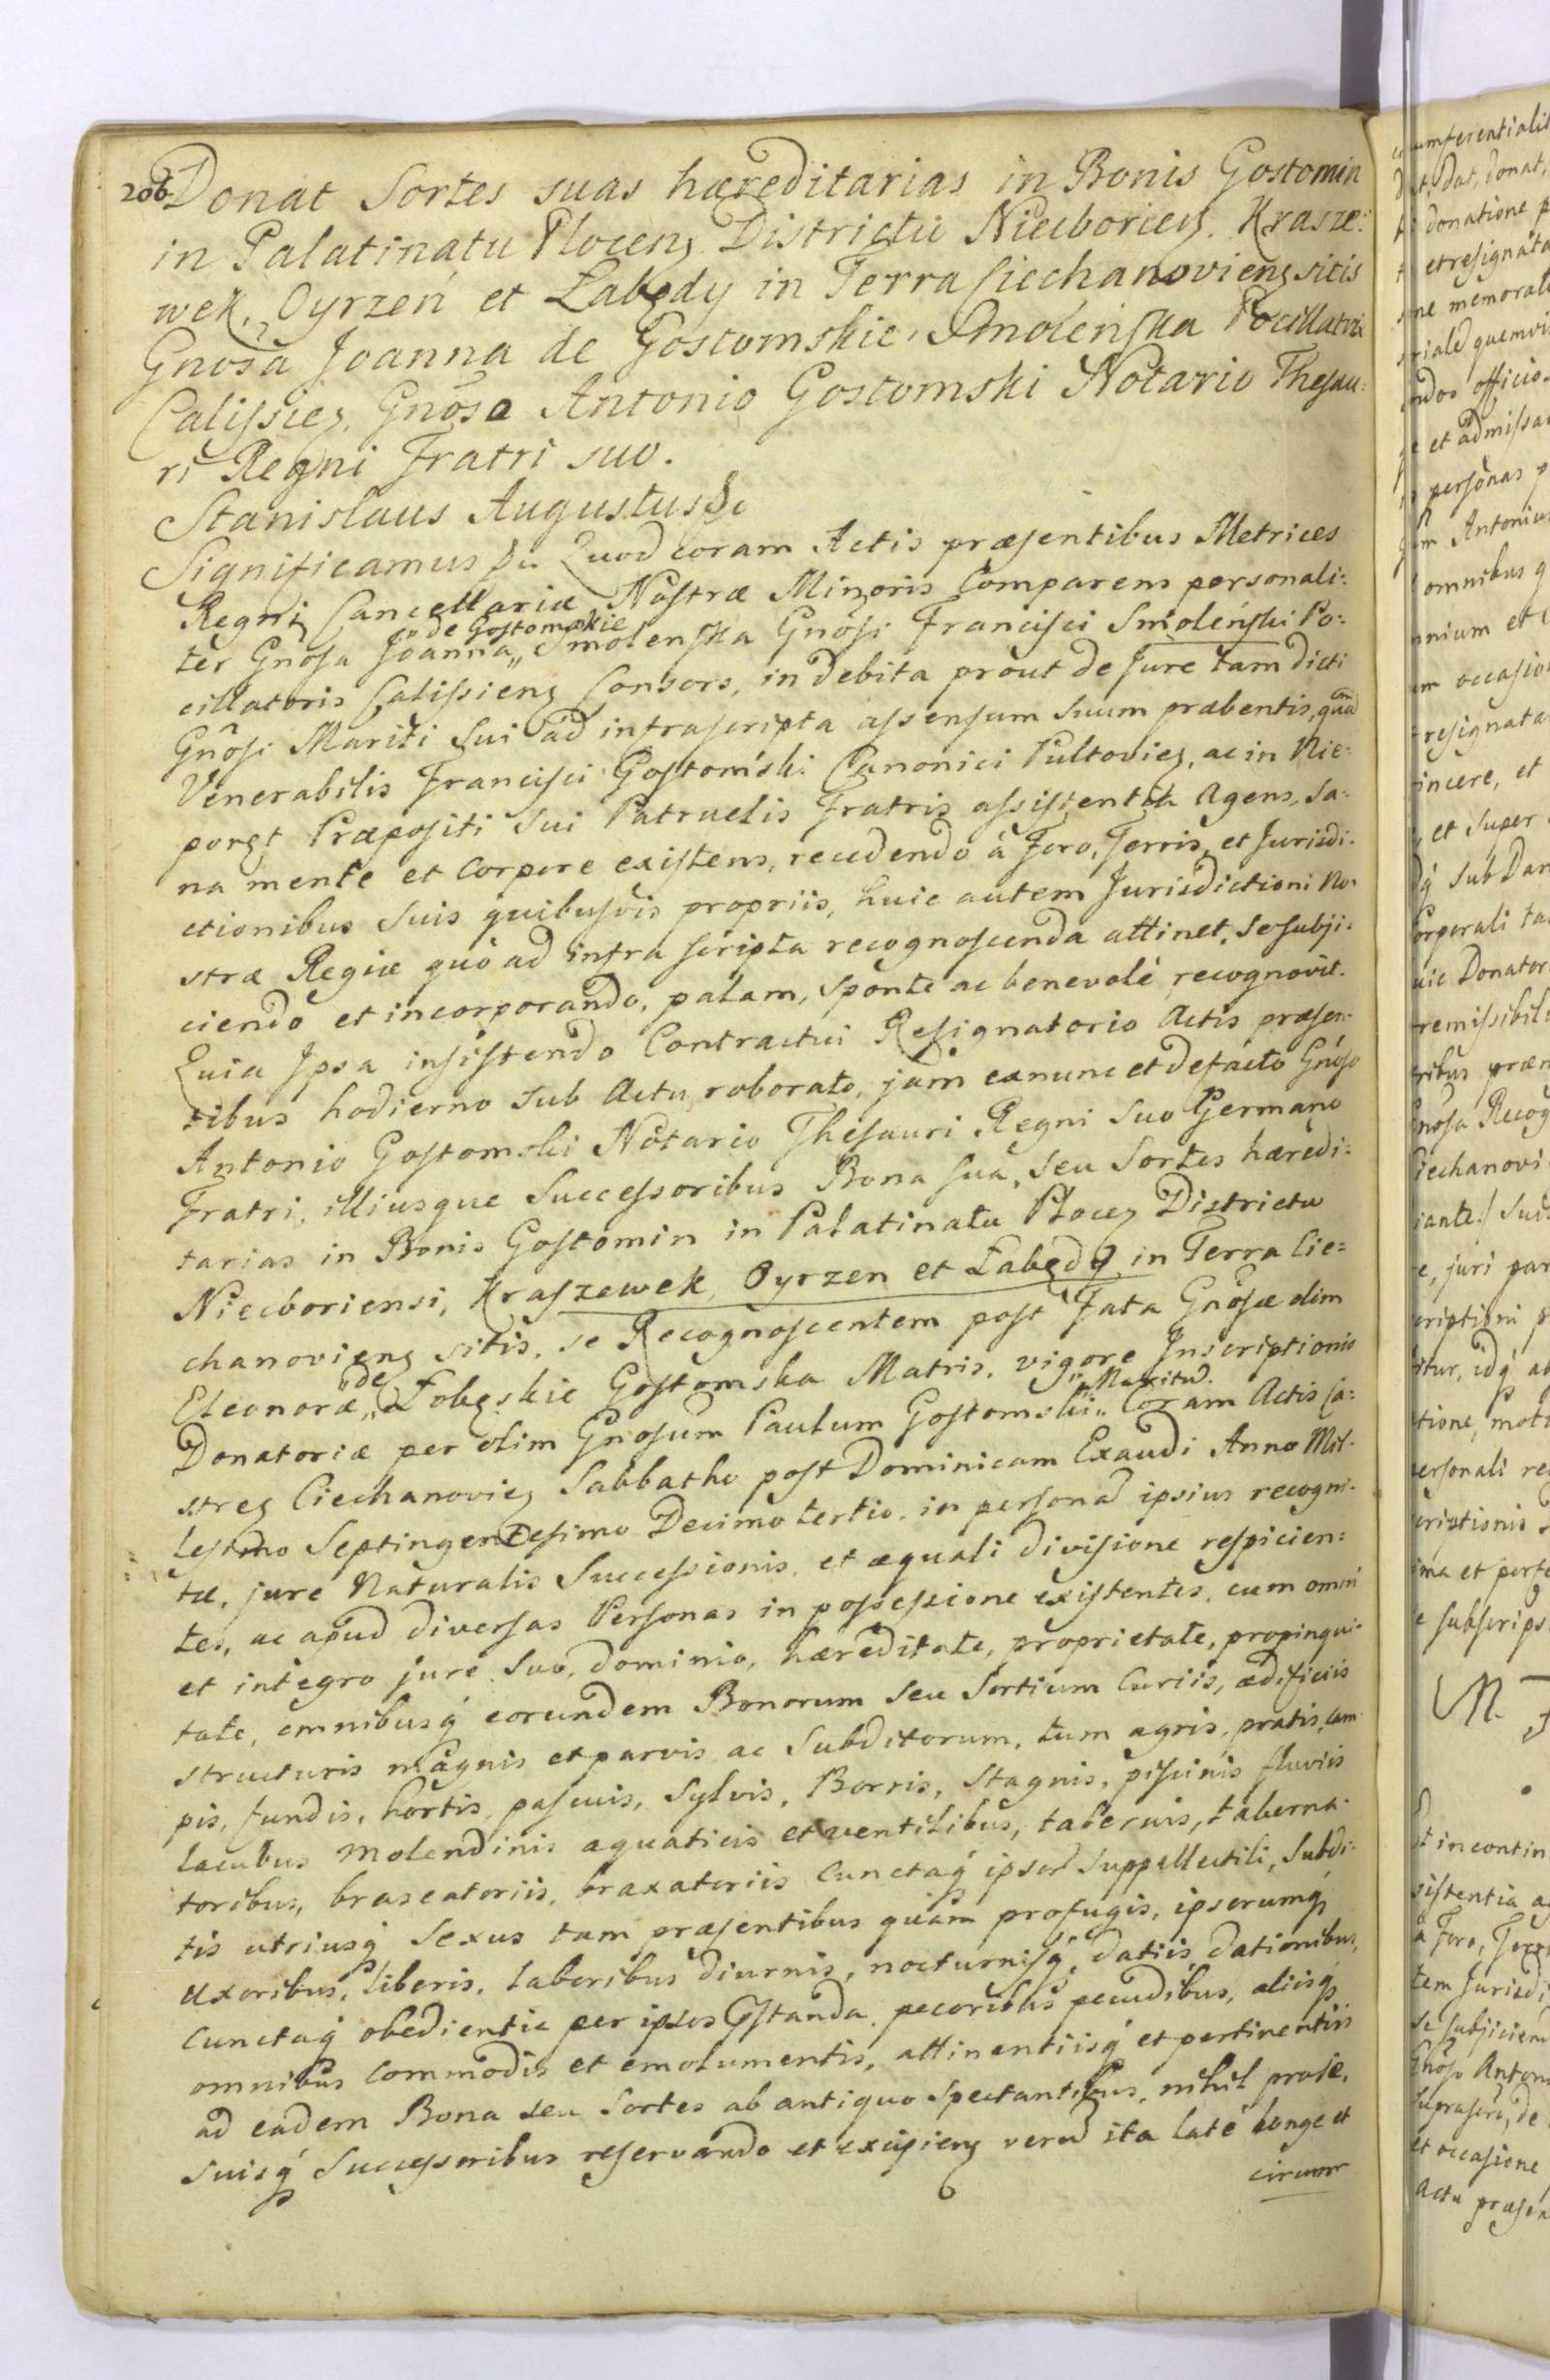 206.
Donat Sortes suas hæreditarias in Bonis Gostomin
in Palatinatu Plocens Districtu Niecboriens. Krasze:
wek, Oyrzeń et Łabędy in Terra Ciechanoviens sitis
Gnosa Joanna de Gostomskie, Smoleńska Pocillatrix
Calissiens. Gnoso Antonio Gostomski Notario Thesau:
ri Regni Fratri suo.
Stanislaus Augustus &c
Significamus &c. Quod coram Actis præsentibus Metrices
Regni Cancellariæ Nostræ Minoris Comparens personali:
de Gostomskie
ter Gnosa Joanna „ Smolenska Gnosi Francisci Smoleński Po:
cillatoris Calissiens Consors, in debita prout de Jure tam dicti
Gnosi Mariti sui ad infrascripta assensum suum præbentis, quam
Venerabilis Francisci Gostomski Canonici Pultoviens, ac in Nie:
poręt Præpositi sui Patruelis Fratris assistentia Agens, sa:
na mente et corpore existens, recedendo à Foro, Terris, et Jurisdi:
ctionibus suis quibusvis propriis, huic autem Jurisdictioni No:
stræ Regiæ quò ad infra scripta recognoscenda attinet, se subji:
ciendo et incorporando, palam, sponte ac benevolè recognovit.
Quia Ipsa insistendo Contractui Resignatorio Actis præsen:
tibus hodierno sub Actu roborato, jam exnunc et defacto Gnoso
Antonio Gostomski Notario Thesauri Regni suo Germano
Fratri, illiusque Successoribus Bona sua, seu Sortes hæredi:
tarias in Bonis Gostomin in Palatinatu Plocens Districtu
Niecboriensi, Kraszewek, Oyrzen et Łabędy in Terra Cie:
chanoviens sitis, se Recognoscentem post Fata Gnosæ olim
de
Eleonoræ „ Łobęskie Gostomska Matris, vigore Inscriptionis
Maritum.
Donatoriæ per olim Gnosum Paulum Gostomski „ Coram Actis Ca:
strens Ciechanoviens Sabbatho post Dominicam Exaudi Anno Mil:
lesimo Septingentesimo Decimo tertio, in personam ipsius recogni:
tæ, jure Naturalis Successionis, et æquali divisione respicien:
tes, ac apud diversas Personas in possessione existentes, cum omni
et integro jure suo, dominio, hæreditate, proprietate, propinqui:
tate, omnibusq eorundem Bonorum seu Sortium Curiis, ædificiis
structuris magnis et parvis, ac Subditorum, tum agris, pratis, cam
pis, fundis, hortis, pascuis, Sylvis, Borris, Stagnis, piscinis fluviis
lacubus molendinis aquaticis et ventilibus, tabernis, taberna:
toribus, braseatoriis, braxatoriis Cunctaq ipsor Suppellectili, Subdi:
tis utriusq Sexus tam præsentibus quàm profugis, ipsorumq
Uxoribus, liberis, laboribus diurnis, nocturnisq, datiis, dationibus,
Cunctaq obedientia per ipsos præstanda, pecoribus pecudibus, aliisq
omnibus Commodis et emolumentis, attinentiisq et pertinentiis
ad eadem Bona seu Sortes ab antiquo Spectantibus, nihil pro se,
suisq Successoribus reservando et excipiens verum ita latè longe et
circum